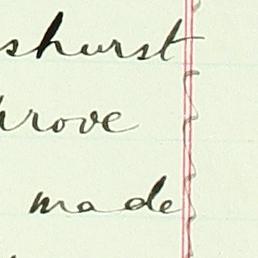 shurst
rove
made